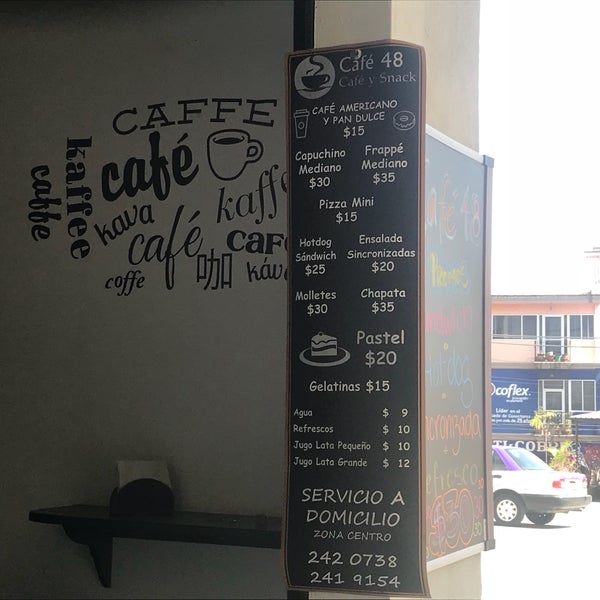 CAFFE
kaffee
caffe
café
kava
café
kaffe
café
coffe
咖
káva
Café 48
Café y Snack
CAFÉ AMERICANO
Y PAN DULCE
$15
Capuchino
Mediano
$30
Frappé
Mediano
$35
Pizza Mini
$15
Hotdog
Sándwich
$25
Ensalada
Sincronizadas
$20
Molletes
$30
Chapata
$35
Pastel
$20
Gelatinas $15
Agua $ 9
Refrescos $ 10
Jugo Lata Pequeño $ 10
Jugo Lata Grande $ 12
SERVICIO A
DOMICILIO
ZONA CENTRO
242 0738
241 9154
afé 48
ó
+
efresco
$30
coflex.
Líder en el